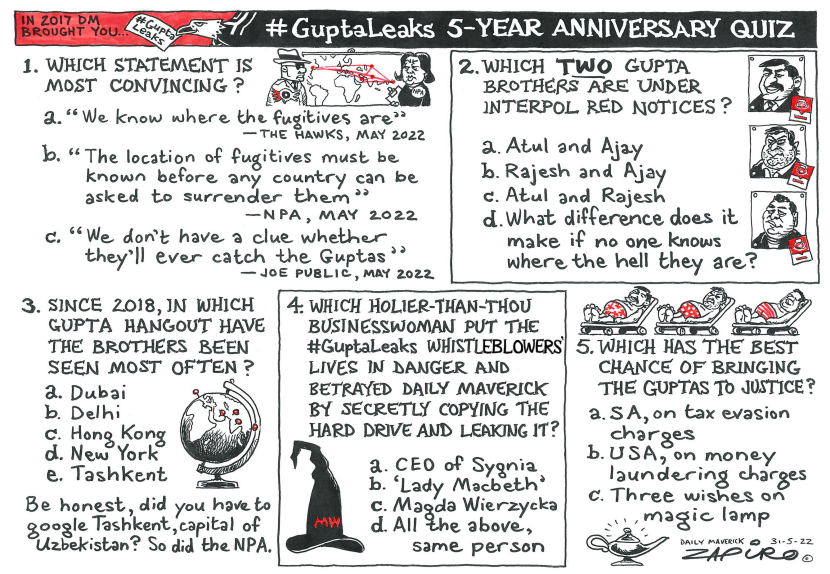 IN 2017 DM
BROUGHT YOU...
#Gupta
Leaks
#GuptaLeaks 5-YEAR ANNIVERSARY QUIZ
1. WHICH STATEMENT IS
MOST CONVINCING?
NPA
a. “We know where the fugitives are”
—THE HAWKS, MAY 2022
b. “The location of fugitives must be
known before any country can be
asked to surrender them”
—NPA, MAY 2022
c. “We don't have a clue whether
they'll ever catch the Guptas”
—JOE PUBLIC, MAY 2022
2. WHICH TWO GUPTA
BROTHERS ARE UNDER
INTERPOL RED NOTICES?
a. Atul and Ajay
b. Rajesh and Ajay
c. Atul and Rajesh
d. What difference does it
make if no one knows
where the hell they are?
3. SINCE 2018, IN WHICH
GUPTA HANGOUT HAVE
THE BROTHERS BEEN
SEEN MOST OFTEN?
a. Dubai
b. Delhi
c. Hong Kong
d. New York
e. Tashkent
Be honest, did you have to
google Tashkent, capital of
Uzbekistan? So did the NPA.
4. WHICH HOLIER-THAN-THOU
BUSINESSWOMAN PUT THE
#GuptaLeaks WHISTLEBLOWERS'
LIVES IN DANGER AND
BETRAYED DAILY MAVERICK
BY SECRETLY COPYING THE
HARD DRIVE AND LEAKING IT?
a. CEO of Sygnia
b. ‘Lady Macbeth’
c. Magda Wierzycka
d. All the above,
same person
5. WHICH HAS THE BEST
CHANCE OF BRINGING
THE GUPTAS TO JUSTICE?
a. SA, on tax evasion
charges
b. USA, on money
laundering charges
c. Three wishes on
magic lamp
DAILY MAVERICK 31-5-22
ZAPIRO ©